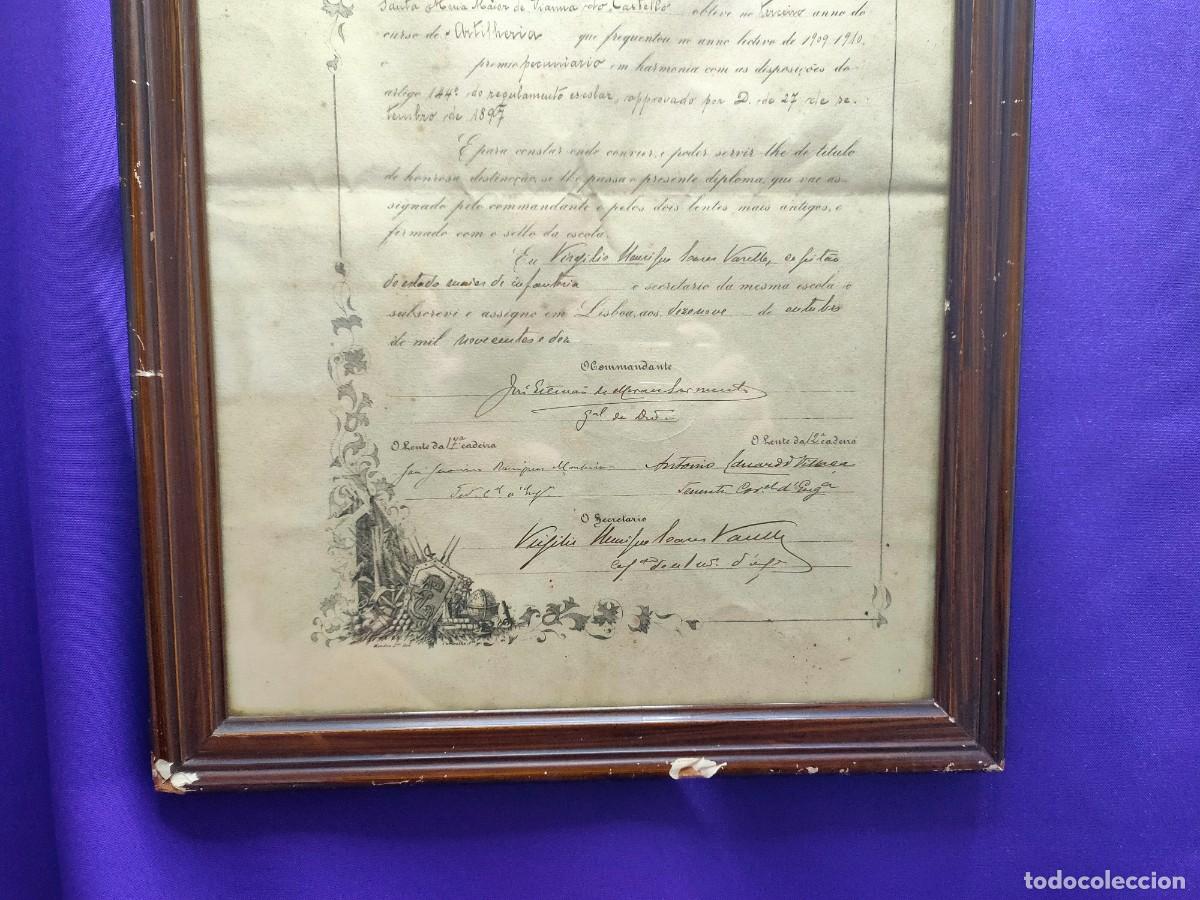 Santa Maria Maior de Vianna do Castello obteve no terceiro anno do
curso de Artilheria que frequentou no anno lectivo de 1909-1910,
o premio pecuniario em harmonia com as disposições do
artigo 144º do regulamento escolar, approvado por D. de 27 de se-
tembro de 1897
E para constar onde convier, e poder servir-lhe de titulo
de honrosa distincção, se lhe passa o presente diploma, que vae as-
signado pelo commandante e pelos dois lentes mais antigos, e
firmado com o sello da escola.
Eu Virgilio Henrique Soares Varella, capitão
do estado maior de infanteria e secretario da mesma escola o
subscrevi e assigno em Lisboa, aos dezenove de outubro
de mil novecentos e dez
O Commandante
José Estevão de Moraes Sarmento
Gal de Divão
O Lente da 17ª cadeira
O Lente da 12ª cadeira
José Rodrigues Monteiro
Antonio Eduardo Villaça
Tenente Corel d'Enga
O Secretario
Virgilio Henrique Soares Varella
todocoleccion